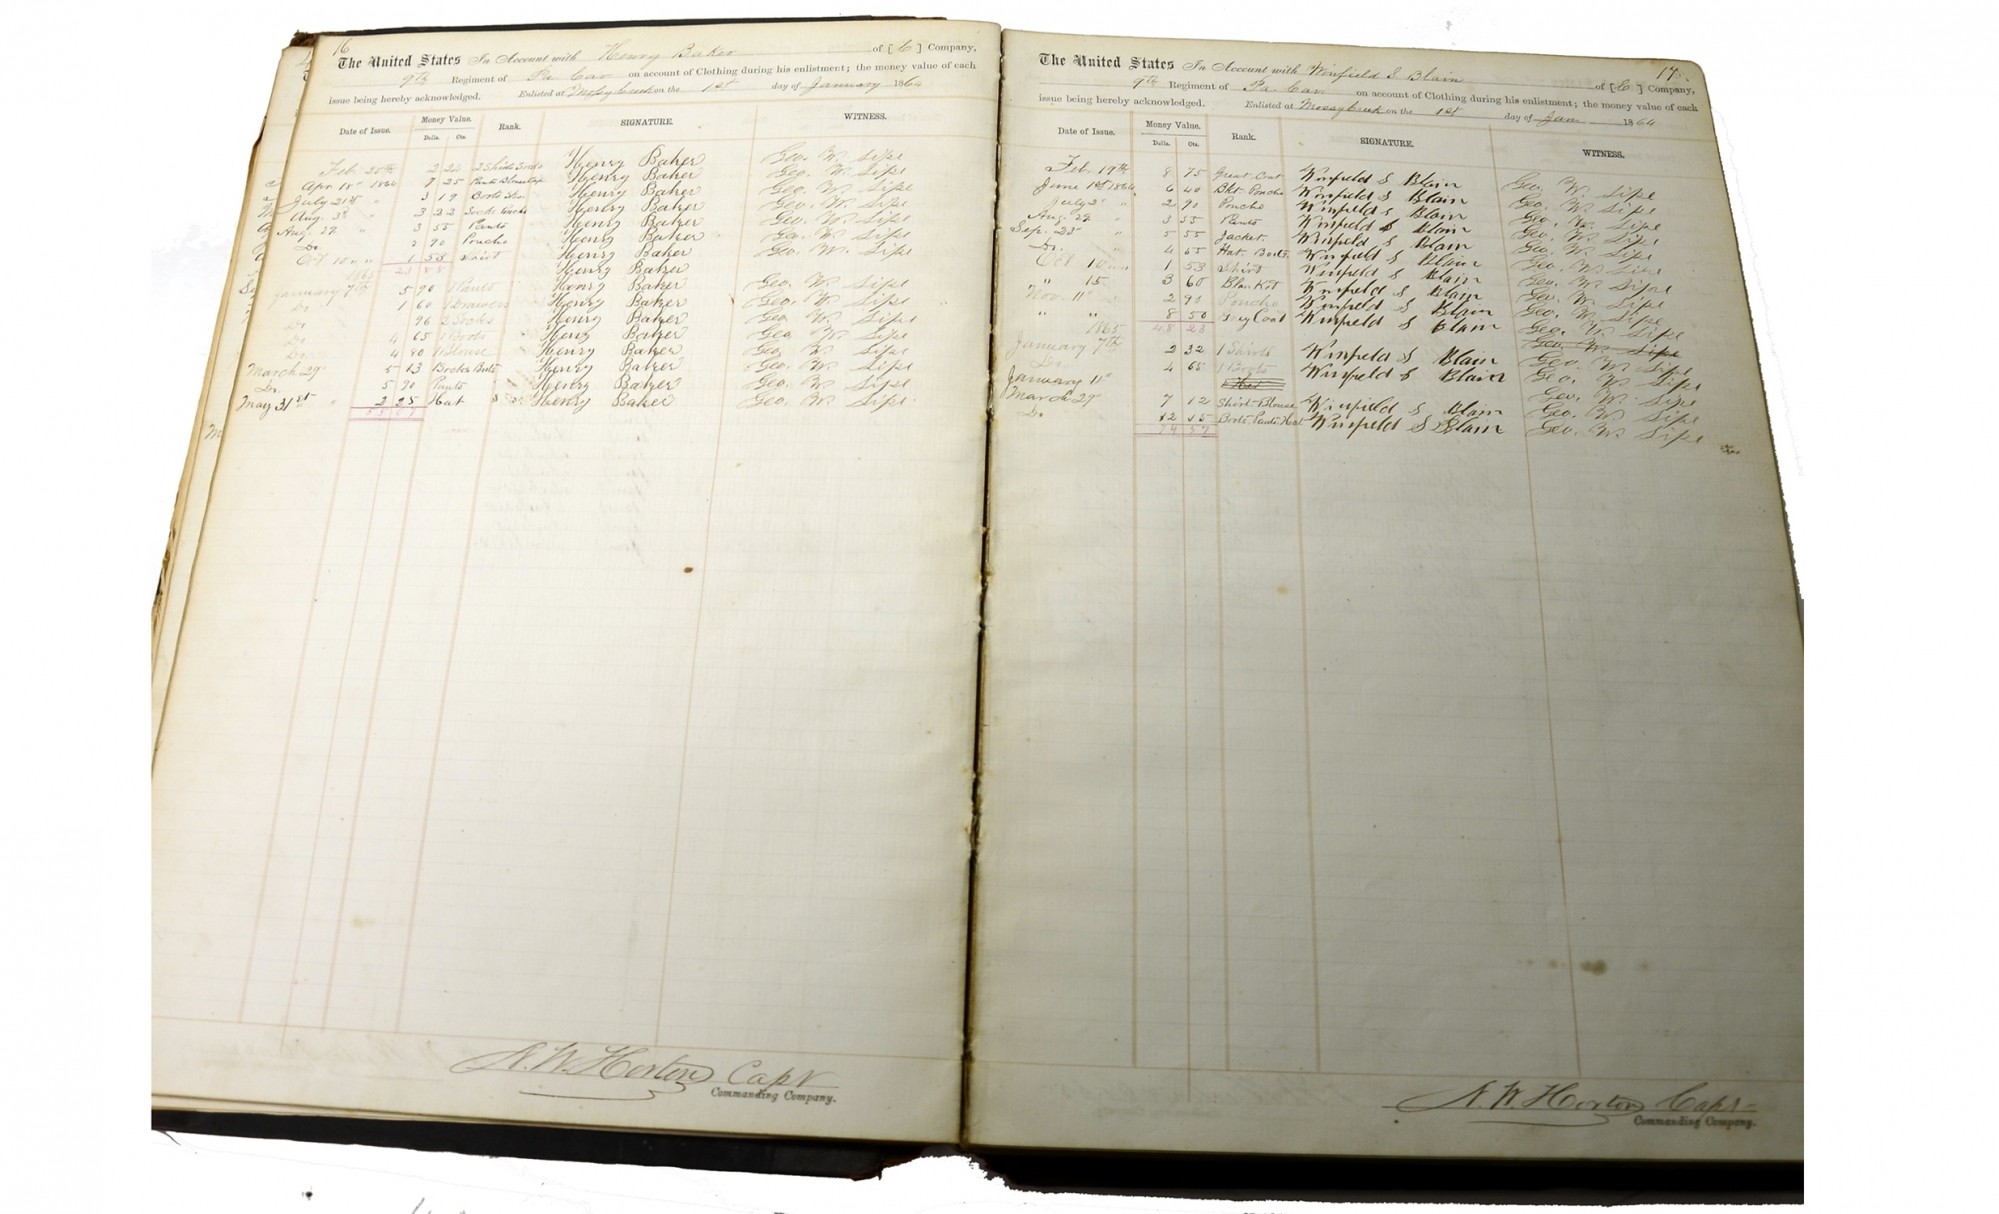 16
The United States In Account with Henry Baker of [C] Company,
9th Regiment of Pa Cav on account of Clothing during his enlistment; the money value of each
issue being hereby acknowledged. Enlisted at on the 1st day of January 1864
Date of Issue. Money Value. Rank. SIGNATURE. WITNESS.
Dolls. Cts.
Feb. 20th 2 24 Henry Baker Geo. W. Sipe
Apr 18" 1864 7 25 Henry Baker Geo. W. Sipe
July 21st " 3 19 Henry Baker Geo. W. Sipe
Aug. 3d " 3 22 Henry Baker Geo. W. Sipe
Aug. 29 " 3 55 Pants Henry Baker Geo. W. Sipe
Do. 2 90 Poncho Henry Baker Geo. W. Sipe
Oct 10 " " 1 53 Shirt Henry Baker Geo. W. Sipe
23 88 Henry Baker
1865
January 7th 5 90 1 Pants Henry Baker Geo. W. Sipe
Do. 1 60 1 Drawers Henry Baker Geo. W. Sipe
Do. 96 2 Socks Henry Baker Geo W. Sipe
Do. 4 65 1 Boots Henry Baker Geo W. Sipe
Do. 4 80 1 Blouse Henry Baker Geo. W. Sipe
March 29" 5 13 Henry Baker Geo. W. Sipe
Do. 5 90 Pants Henry Baker Geo. W. Sipe
May 31st " 2 25 Hat Henry Baker Geo. W. Sipe
N. W. Horton Capt
Commanding Company.
17.
The United States In Account with Winfield S Blain of [C] Company,
9th Regiment of Pa. Cav on account of Clothing during his enlistment; the money value of each
issue being hereby acknowledged. Enlisted at Mossycreek on the 1st day of Jan 1864
Date of Issue. Money Value. Rank. SIGNATURE. WITNESS.
Dolls. Cts.
Feb. 19th 8 75 Great Coat Winfield S Blain Geo. W. Sipe
June 1st 1864 6 40 Bkt. Poncho Winfield S Blain Geo. W. Sipe
July 2" " 2 90 Poncho Winfield S Blain Geo. W. Sipe
Aug. 29 " 3 55 Pants Winfield S Blain Geo. W. Sipe
Sep. 25" " 5 55 Jacket. Winfield S Blain Geo. W. Sipe
Do. 4 65 Winfield S Blain Geo. W. Sipe
Oct 10 " " 1 53 Shirt Winfield S Blain Geo. W. Sipe
" 15 3 60 Blanket Winfield S Blain Geo. W. Sipe
Nov. 11" 2 90 Poncho Winfield S Blain Geo. W. Sipe
" " 8 50 Coat Winfield S Blain Geo. W. Sipe
1865 48 23
January 7th 2 32 1 Winfield S Blain Geo. W. Sipe
Do. 4 65 1 Boots Winfield S Blain Geo. W. Sipe
January 11" Hat
March 29" 7 12 Shirt-Blouse Winfield S Blain Geo. W. Sipe
Do 12 15 Boots. Pants. Hat Winfield S Blain Geo. W. Sipe
N. W. Horton Capt
Commanding Company.